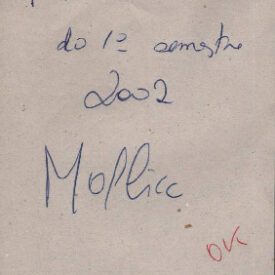 do 1º semestre
2002
Mollica
OK